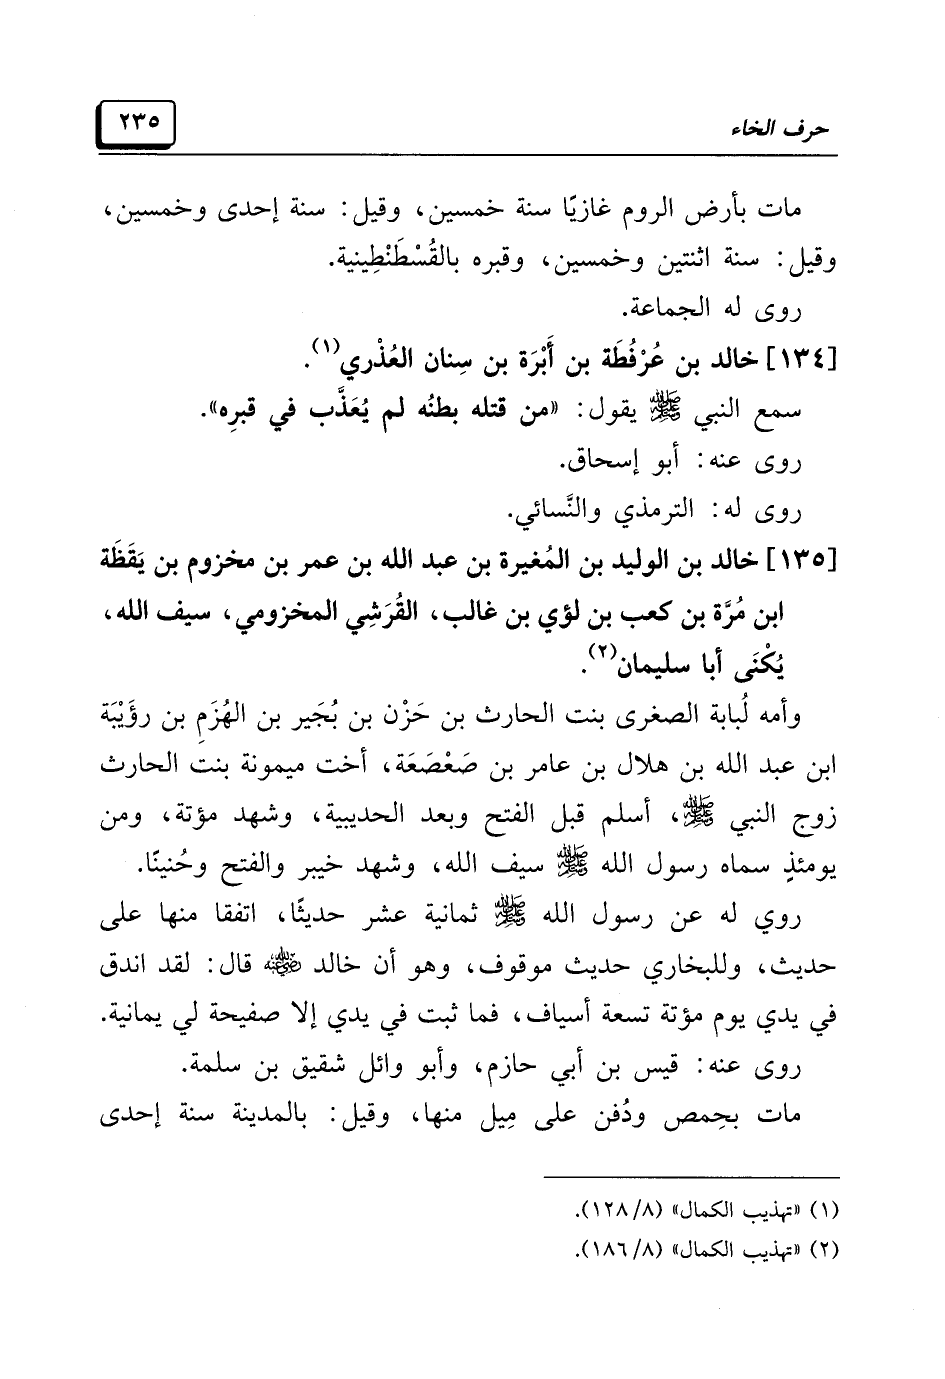 حرف الخاء
٢٣٥
مات بأرض الروم غازيًا سنة خمسين، وقيل: سنة إحدى وخمسين،
وقيل: سنة اثنتين وخمسين، وقبره بالقُسْطَنْطِينية.
روى له الجماعة.
[١٣٤] خالد بن عُرْفُطَة بن أَبْرَة بن سِنان العُذْري(١).
سمع النبي ﷺ يقول: «من قتله بطنُه لم يُعَذَّب في قبرِه».
روى عنه: أبو إسحاق.
روى له: الترمذي والنَّسائي.
[١٣٥] خالد بن الوليد بن المُغيرة بن عبد الله بن عمر بن مخزوم بن يَقَظَة
ابن مُرَّة بن كعب بن لؤي بن غالب، القُرَشِي المخزومي، سيف الله،
يُكْنَى أبا سليمان(٢).
وأمه لُبابة الصغرى بنت الحارث بن حَزْن بن بُجَير بن الهُزَمِ بن رؤَيْبَة
ابن عبد الله بن هلال بن عامر بن صَعْصَعَة، أخت ميمونة بنت الحارث
زوج النبي ﷺ، أسلم قبل الفتح وبعد الحديبية، وشهد مؤتة، ومن
يومئذٍ سماه رسول الله ﷺ سيف الله، وشهد خيبر والفتح وحُنينًا.
روي له عن رسول الله ﷺ ثمانية عشر حديثًا، اتفقا منها على
حديث، وللبخاري حديث موقوف، وهو أن خالد رضي الله عنه قال: لقد اندق
في يدي يوم مؤتة تسعة أسياف، فما ثبت في يدي إلا صفيحة لي يمانية.
روى عنه: قيس بن أبي حازم، وأبو وائل شقيق بن سلمة.
مات بحِمص ودُفن على مِيل منها، وقيل: بالمدينة سنة إحدى
(١) «تهذيب الكمال» (٨/ ١٢٨).
(٢) «تهذيب الكمال» (٨/ ١٨٦).